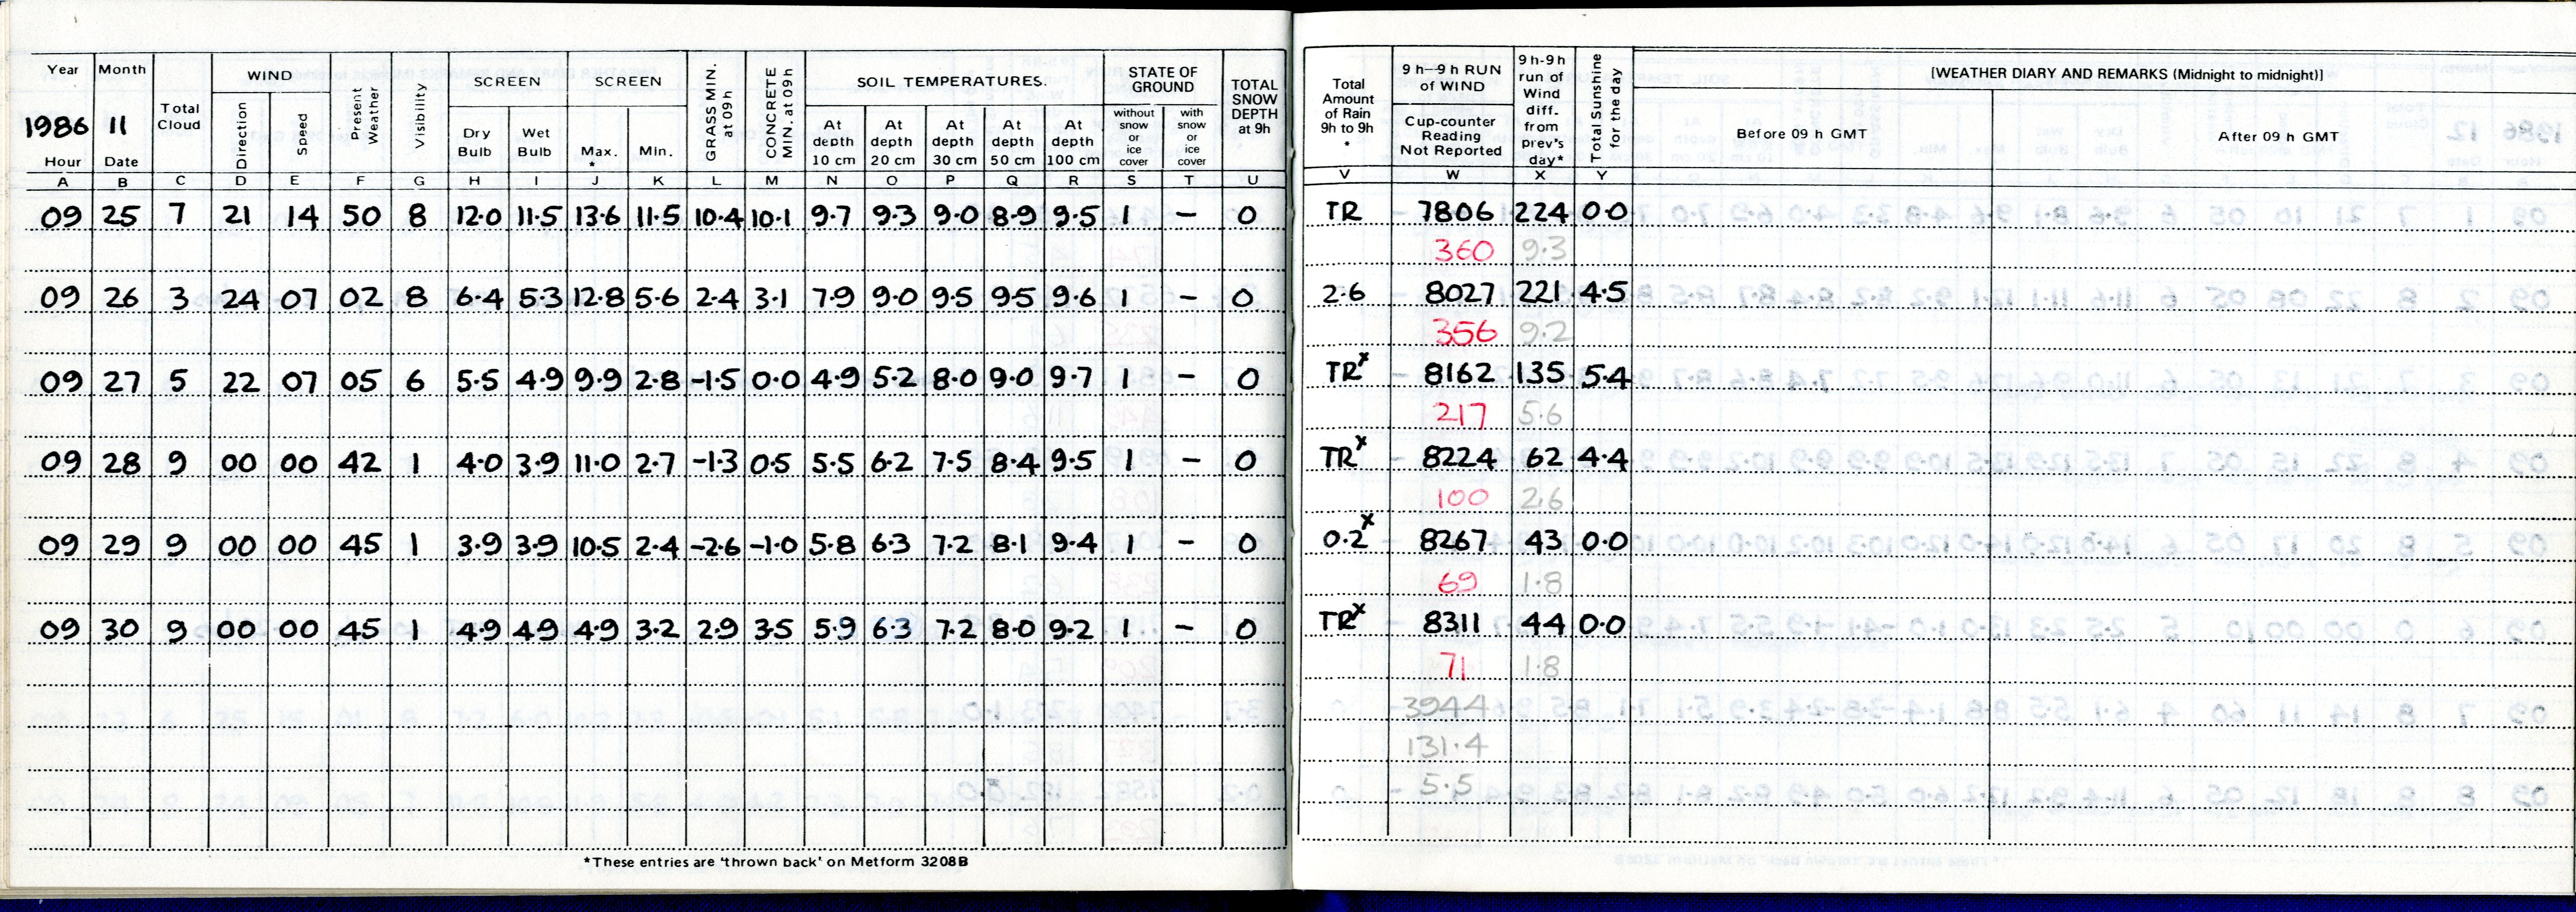 Year Month Total Cloud WIND Present Weather Visibility SCREEN SCREEN GRASS MIN. at 09h CONCRETE MIN. at 09h SOIL TEMPERATURES. STATE OF GROUND TOTAL SNOW DEPTH at 9h
1986 11 Direction Speed Dry Bulb Wet Bulb Max. * Min. At depth 10 cm At depth 20 cm At depth 30 cm At depth 50 cm At depth 100 cm without snow or ice cover with snow or ice cover
Hour Date
A B C D E F G H I J K L M N O P Q R S T U
09 25 7 21 14 50 8 12.0 11.5 13.6 11.5 10.4 10.1 9.7 9.3 9.0 8.9 9.5 1 – 0
09 26 3 24 07 02 8 6.4 5.3 12.8 5.6 2.4 3.1 7.9 9.0 9.5 9.5 9.6 1 – 0
09 27 5 22 07 05 6 5.5 4.9 9.9 2.8 -1.5 0.0 4.9 5.2 8.0 9.0 9.7 1 – 0
09 28 9 00 00 42 1 4.0 3.9 11.0 2.7 -1.3 0.5 5.5 6.2 7.5 8.4 9.5 1 – 0
09 29 9 00 00 45 1 3.9 3.9 10.5 2.4 -2.6 -1.0 5.8 6.3 7.2 8.1 9.4 1 – 0
09 30 9 00 00 45 1 4.9 4.9 4.9 3.2 2.9 3.5 5.9 6.3 7.2 8.0 9.2 1 – 0
*These entries are 'thrown back' on Metform 3208B
Total Amount of Rain 9h to 9h * 9h–9h RUN of WIND Cup-counter Reading Not Reported 9h-9h run of Wind diff. from prev's day* Total Sunshine for the day [WEATHER DIARY AND REMARKS (Midnight to midnight)]
Before 09 h GMT After 09 h GMT
V W X Y
TR 7806 224 0.0
360 9.3
2.6 8027 221 4.5
356 9.2
TRx 8162 135 5.4
217 5.6
TRx 8224 62 4.4
100 2.6
0.2x 8267 43 0.0
69 1.8
TRx 8311 44 0.0
71 1.8
3944
131.4
5.5